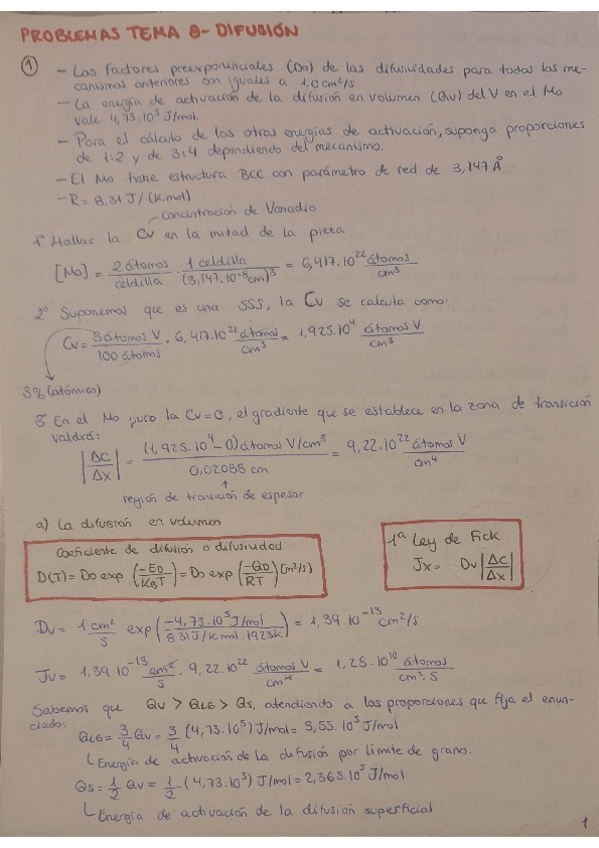 PROBLEMAS TEMA 8 - DIFUSIÓN
① - Los factores preexponenciales (Do) de las difusividades para todos los me-
canismos anteriores son iguales a 1,0 cm²/s
- La energía de activación de la difusión en volumen (Qv) del V en el Mo
vale 4,73.10⁵ J/mol.
- Para el cálculo de las otras energías de activación, suponga proporciones
de 1:2 y de 3:4 dependiendo del mecanismo.
- El Mo tiene estructura BCC con parámetro de red de 3,147 Å
- R = 8,31 J/(K.mol)
concentración de Vanadio
1º Hallar la Cv en la mitad de la pieza
[Mo] = 2 átomos/celdilla · 1 celdilla/(3,147.10⁻⁸cm)³ = 6,417.10²² átomos/cm³
2º Suponemos que es una SSS, la Cv se calcula como:
Cv = 3 átomos V/100 átomos · 6,417.10²² átomos/cm³ = 1,925.10⁴ átomos V/cm³
3% (atómico)
3º En el Mo puro la Cv=0, el gradiente que se establece en la zona de transición
valdrá:
|ΔC/Δx| = (1,925.10⁴ - 0) átomos V/cm³ / 0,02085 cm = 9,22.10²² átomos V/cm⁴
región de transición de espesor
a) La difusión en volumen
Coeficiente de difusión o difusividad
D(T) = Do exp (-ED/KBT) = Do exp (-QD/RT) [m²/s]
1ª Ley de Fick
Jx = Dv |ΔC/Δx|
Dv = 1 cm²/s exp (-4,73.10⁵ J/mol / 8,31 J/K mol . 1923K) = 1,39.10⁻¹³ cm²/s
Jv = 1,39.10⁻¹³ cm²/s · 9,22.10²² átomos V/cm⁴ = 1,28.10¹⁰ átomos/cm².s
Sabemos que Qv > QLG > Qs, atendiendo a las proporciones que fija el enun-
ciado:
QLG = 3/4 Qv = 3/4 (4,73.10⁵) J/mol = 3,55.10⁵ J/mol
Energía de activación de la difusión por límite de grano.
Qs = 1/2 Qv = 1/2 (4,73.10⁵) J/mol = 2,365.10⁵ J/mol
Energía de activación de la difusión superficial
1